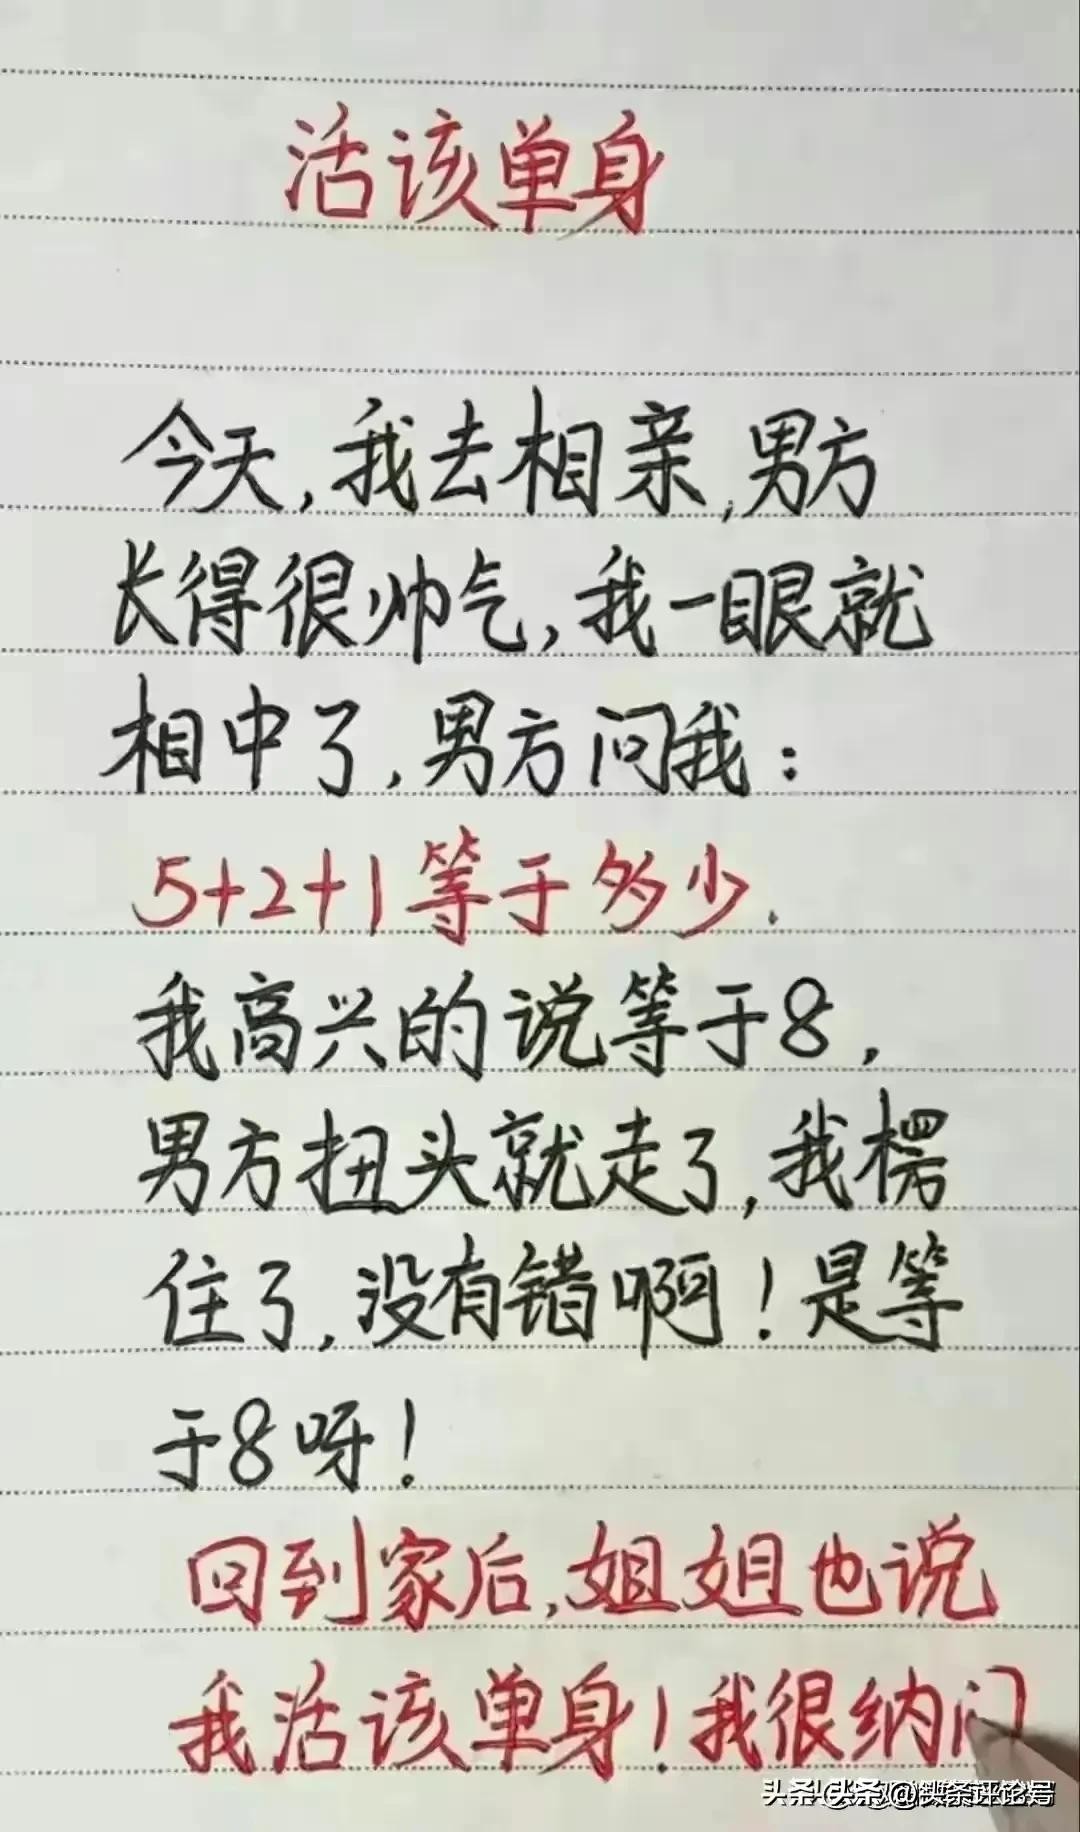 活该单身
今天,我去相亲,男方
长得很帅气,我一眼就
相中了,男方问我:
5+2+1等于多少.
我高兴的说等于8,
男方扭头就走了,我楞
住了,没有错啊!是等
于8呀!
回到家后,姐姐也说
我活该单身!我很纳
头条@头条评论号